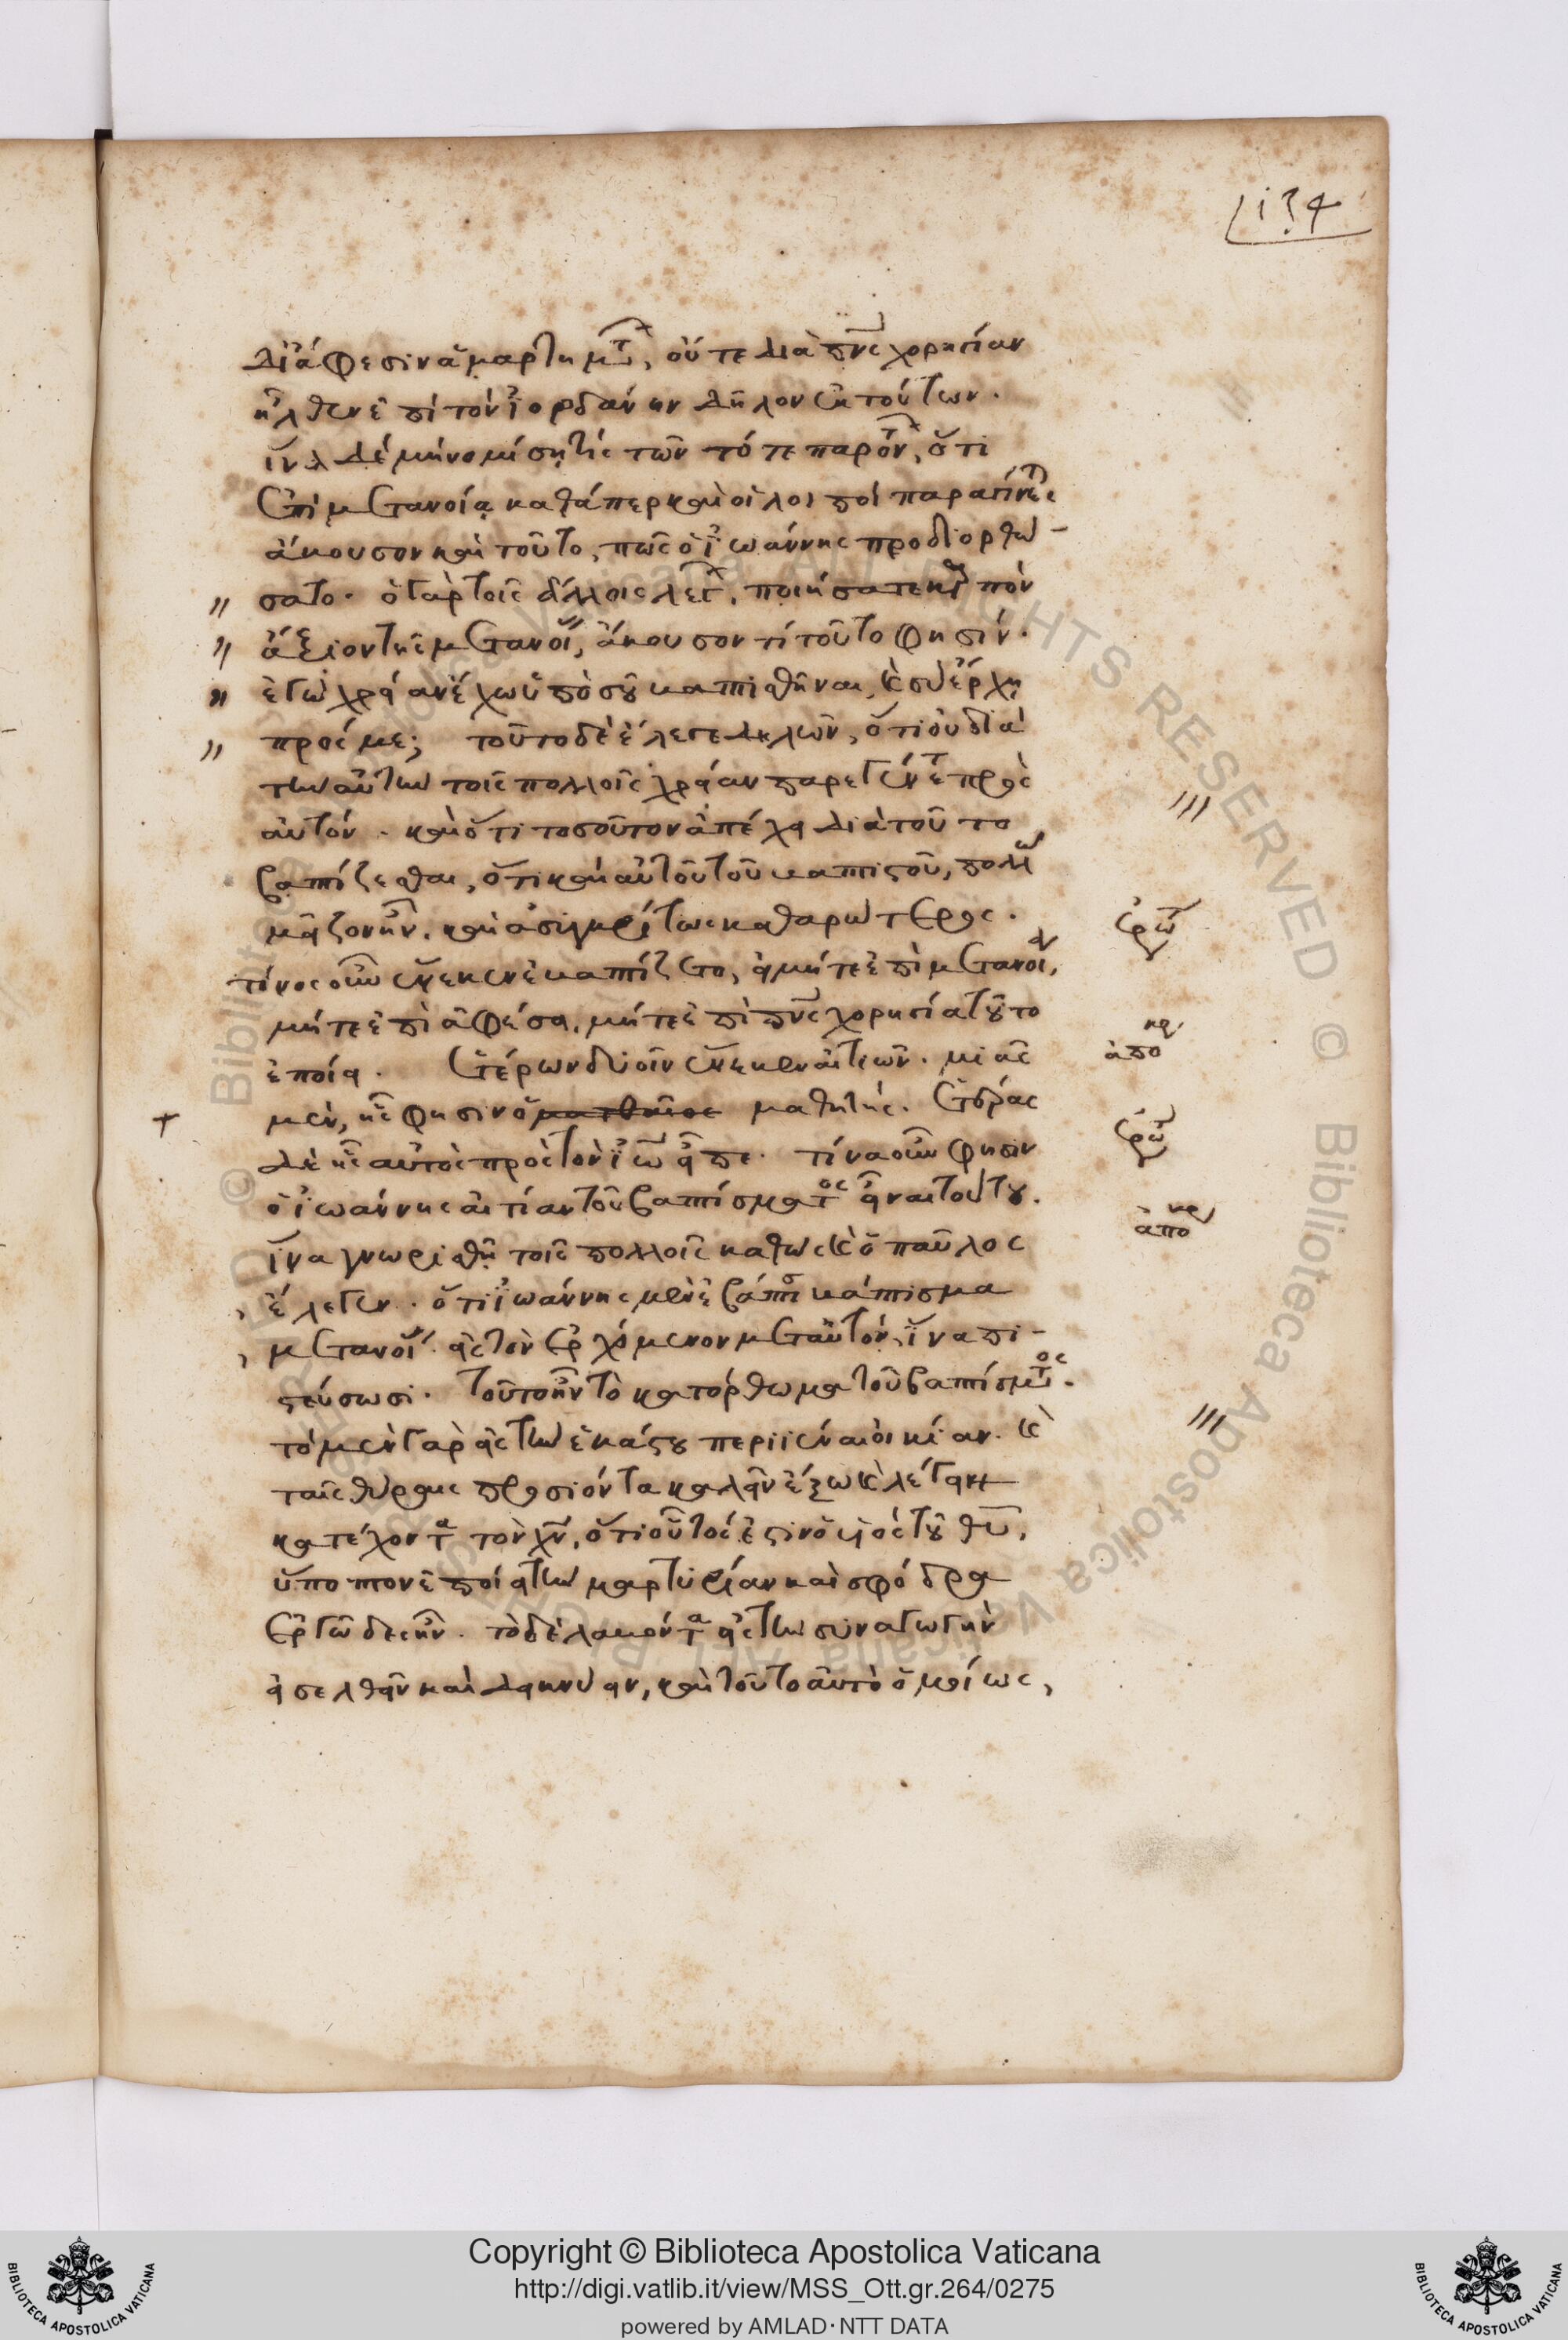 134
δι' ἄφεσιν ἁμαρτημτ, οὔτε διὰ πνς χορηγίαν
ἦλθεν ἐπὶ τὸν ἰορδάνην δῆλον ἐκ τούτων.
ἵνα δὲ μὴ νομίσῃ τίς τῶν τότε παρόντ, ὅτι
ἐπὶ μετανοίᾳ καθάπερ καὶ οἱ λοιποὶ παραγίνετ
ἄκουσον καὶ τοῦτο, πῶς ὁ ἰωάννης προδιορθώ-
σατο. ὁ γὰρ τοῖς ἄλλοις λέγ, ποιήσατε καρπὸν
ἄξιον τῆς μετανοί, ἄκουσον τί τοῦτο φησίν.
ἐγὼ χρείαν ἔχω ὑπὸ σοῦ βαπτισθῆναι, καὶ σὺ ἔρχῃ
πρός με; τοῦτο δὲ ἔλεγε δηλῶν, ὅτι οὐ διὰ
τὴν αὐτὴν τοῖς πολλοῖς χρείαν παρεγένετ πρὸς
αὐτόν. καὶ ὅτι τοσοῦτον ἀπέχει διὰ τοῦτο
βαπτίζεσθαι, ὅτι καὶ αὐτοῦ τοῦ βαπτιστοῦ, πολλῶ
μείζον ἦν. καὶ ἀσυγκρίτως καθαρώτερος.
ἐρώ
τίνος οὖν ἕνεκεν ἐβαπτίζετο, εἰ μήτε ἐπὶ μετανοί,
μήτε ἐπὶ ἀφέσει, μήτε ἐπὶ πνς χορηγία τοῦτο
ἐποίει. ἑτέρων δυοῖν ἕνεκεν αἰτιῶν. μιᾶς
ἀπο κρ
μὲν, ἧς φησιν ὁ ματθαῖος μαθητής. ἑτέρας
ἐρώ
δὲ ἧς αὐτὸς πρὸς τὸν ἰω εἶπε. τίνα οὖν φησιν
ὁ ἰωάννης αἰτίαν τοῦ βαπτίσματος εἶναι τούτου.
ἀπο κρ
ἵνα γνωρισθῇ τοῖς πολλοῖς καθὼς καὶ ὁ παῦλος
ἔλεγεν. ὅτι ἰωάννης μὲν ἐβάπτι βάπτισμα
μετανοί. εἰς τὸν ἐρχόμενον μετ' αὐτόν, ἵνα πι-
στεύσωσι. τοῦτο ἦν τὸ κατόρθωμα τοῦ βαπτίσμτος.
τὸ μὲν γὰρ εἰς τὴν ἑκάστου περιιέναι οἰκίαν. καὶ
ταῖς θύραις προσιόντα καλεῖν ἔξω καὶ λέγειν
κατέχοντα τὸν χν, ὅτι οὗτός ἐστιν ὁ υἱὸς τοῦ θυ,
ὕποπτον ἐποίει τὴν μαρτυρίαν καὶ σφόδρα
ἐργῶδες ἦν. τὸ δὲ λαβόντα εἰς τὴν συναγωγὴν
εἰσελθεῖν καὶ δεικνύειν, καὶ τοῦτο αὐτὸ ὁμοίως,
Copyright © Biblioteca Apostolica Vaticana
http://digi.vatlib.it/view/MSS_Ott.gr.264/0275
powered by AMLAD·NTT DATA